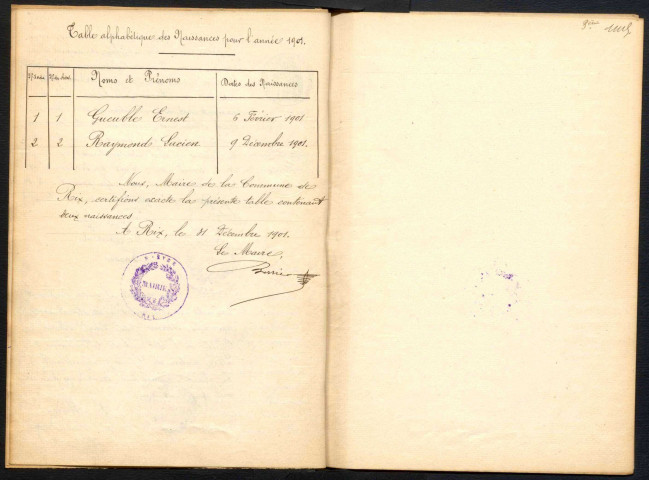 Table alphabétique des Naissances pour l'année 1901.
Noms et Prénoms Dates des Naissances
1 1 Gueuble Ernest 6 Février 1901
2 2 Raymond Lucien 9 Décembre 1901.
Nous, Maire de la Commune de
Rix, certifions exacte la présente table contenant
deux naissances
A Rix, le 31 Décembre 1901.
Le Maire,
MAIRIE